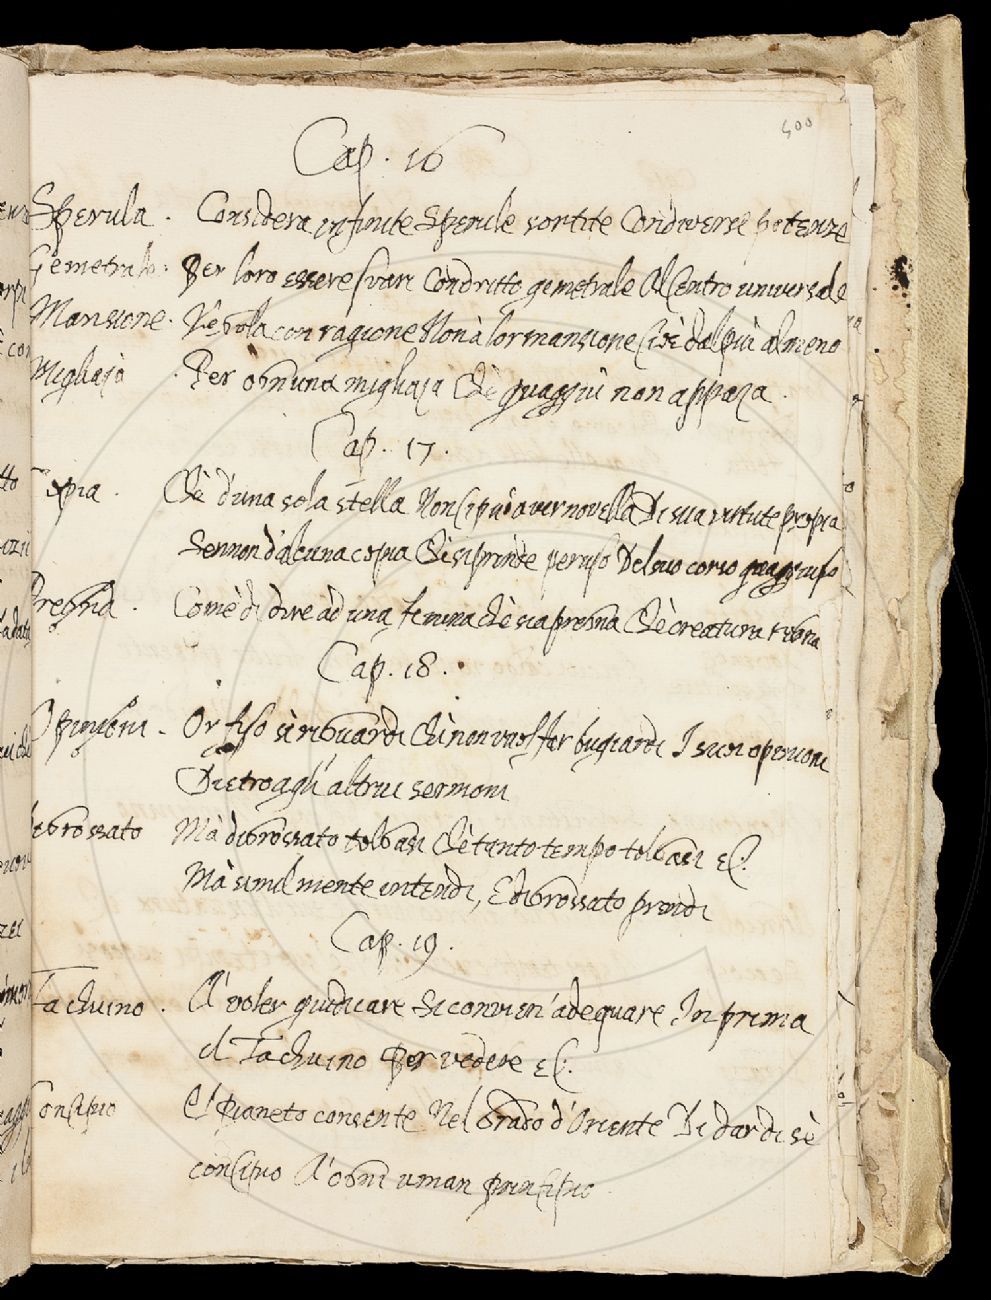 500
Cap. 16
Sperula . Considera infinite Sperule sortite Con diverse potenze
Gemetrale . Per loro essere svari Con dritto gemetrale Al Centro universale
Mansione . Nè vola con ragione Non à lor mansione Cisì dal più al meno
Migliaja . Per ogn'una migliaja Chè quaggiù non appaja .
Cap. 17 .
Copia . Chè d'una sola stella Non si può aver novella Di sua virtute propia
Sennon d'alcuna copia Chè si prende per uso Del suo corso quaggiuso
Pregna . Com'è di dire ad una femina chè sia pregna Chè creatura tegna
Cap. 18 .
Opinioni . Or fiso sì riguardi Chè non vuol far bugiardi I suoi openioni
Dietro agli altrui sermoni
digrossato Mà digrossato tolgasi Chè tanto tempo tolgasi &c.
Mà similmente intendi, E digrossato prendi
Cap. 19 .
Tachuino . A' voler giudicare Si convien' adequare In prima
el Tachuino Per vedere &c.
Concipio El Pianeto consente Nel grado d'Oriente Di dar di sè
concipio A' ogni uman principio